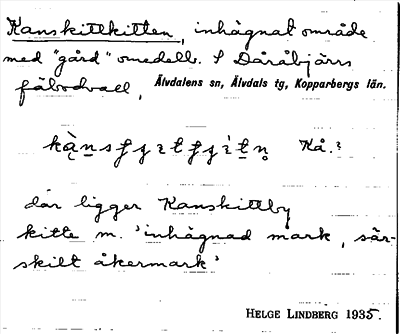 Kanskittkitten, inhägnat område
med "gård" omedelb. S Dåråbjärs
fäbodvall, Älvdalens sn, Älvdals tg, Kopparbergs län.
Kå.?
där ligger Kanskittby
kitte m. 'inhägnad mark, sär-
skilt åkermark'
HELGE LINDBERG 1935.